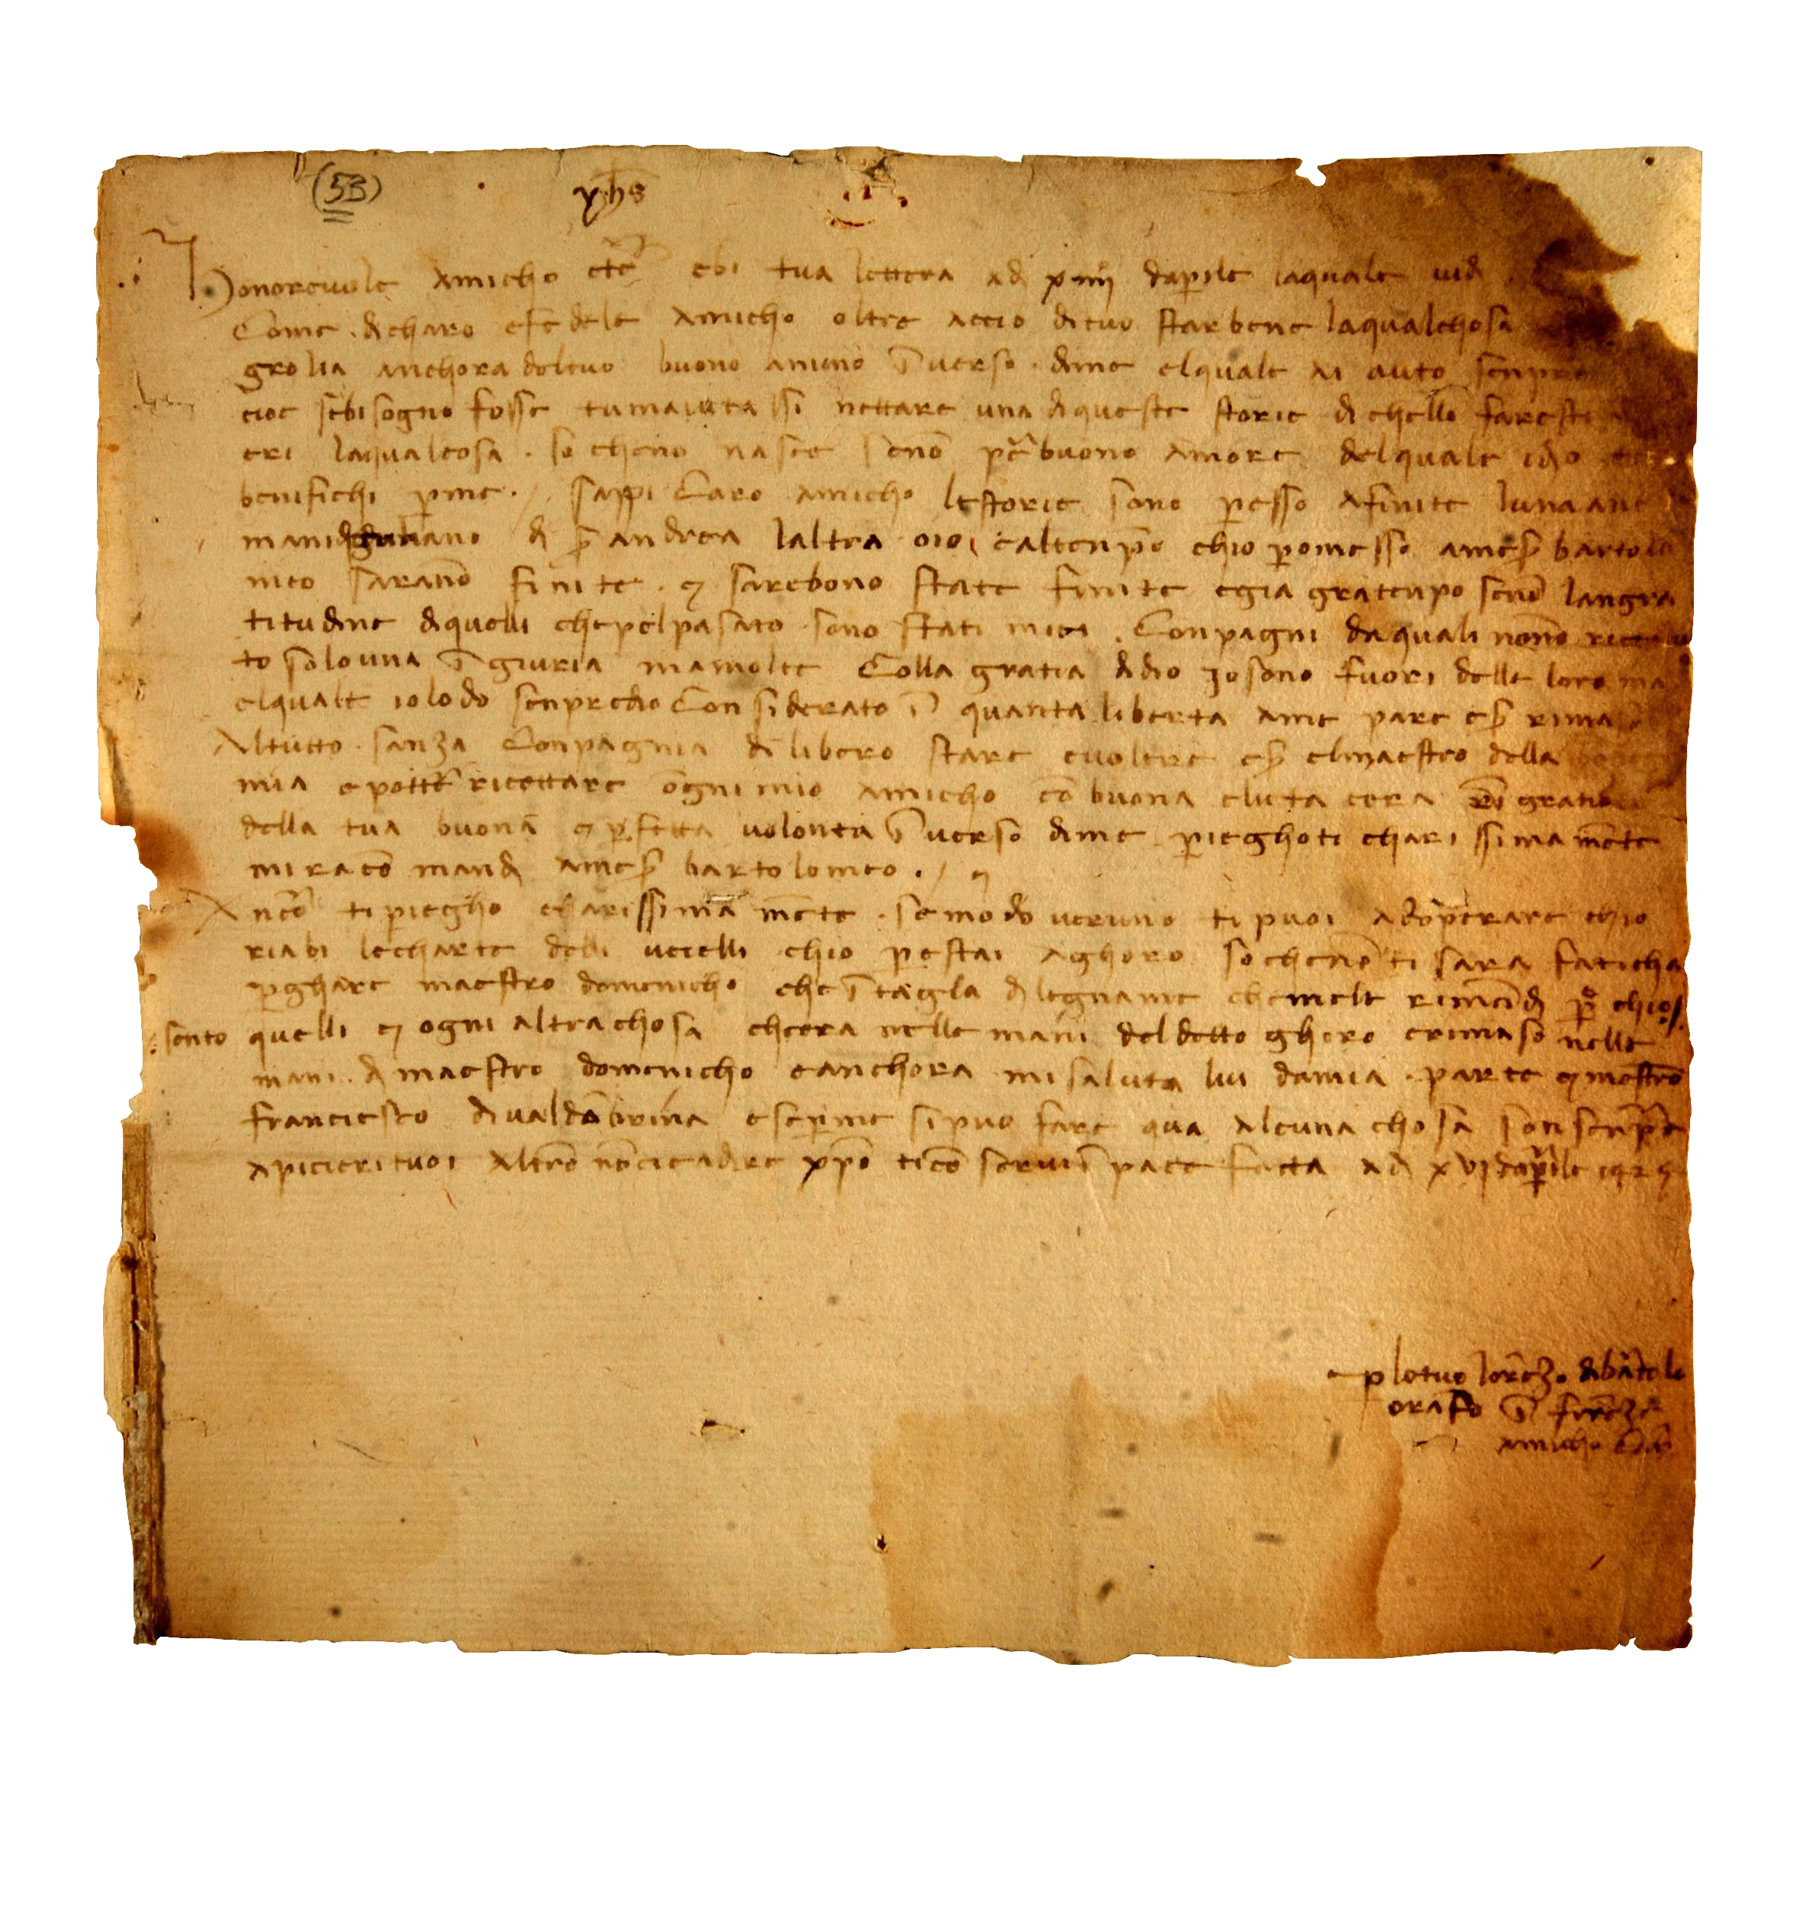 (53) yhs
Honorevole amicho etc ebi tua lettera adi xiiii daprile laquale vidi
Come di charo efedele amicho oltre accio dituo starbene laqualchosa
grolia anchora deltuo buono animo inverso dime elquale ai auto senpre
cioe sebisogno fosse tumaiutassi nettare una diqueste storie di chello faresti
eri laqualcosa so cheno nasce seno per buono amore delquale idio
benifichi p me. sappi Caro amicho lestorie sono presso afinite luna ane
mani giuliano di s andrea laltra oio ealtenpo chio pomesso ames bartolo
meo sarano finite e sarebono state finite egia gratenpo seno langra
titudine diquelli chepelpasato sono stati miei Conpagni daquali nono ricevu
to solouna ingiuria mamolte Colla gratia didio iosono fuori delle loro ma
elquale iolodo senpredio Considerato in quanta liberta ame pare es rimaso
Altutto sanza Conpagnia di libero stare evolere es elmaestro della
mia epotte ricettare ogni mio amicho co buona elieta cera ringratio
della tua buona e pfetta volonta inverso dime pieghoti charissimamete
miraco mandi ames bartolomeo.
Anco ti piegho charissima mete se modo veruno ti puoi adoperare chio
riabi lecharte delli ucielli chio pestai aghoro so cheno ti sara faticha
pghare maestro domenicho che intagla dilegname chemele rimandi p chios
sento quelli e ogni altrachosa chera nelle mani deldetto ghoro erimaso nelle
mani di maestro domenicho eanchora misaluta lui damia parte e mostro
franciesco divaldobrina esepme sipuo fare qua alcuna chosa son senpre
apicierituoi altro nocieadire xpo tico servi in pace fatta adi xvi daprile 1425
plotuo lorenzo dibartolo
orafo in firenze
amicho